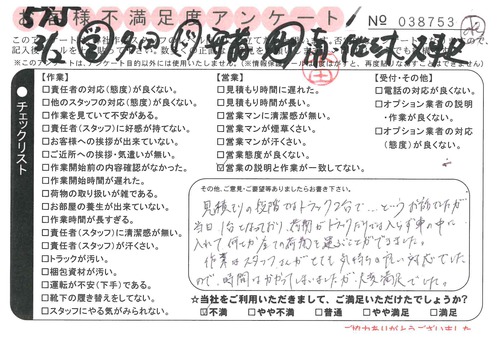 お客様不満足度アンケート
No 038753
※このアンケートは、アンケート目的以外には使用いたしません。
●チェックリスト
【作業】
□責任者の対応(態度)が良くない。
□他のスタッフの対応(態度)が良くない。
□作業を見ていて不安がある。
□責任者(スタッフ)に好感が持てない。
□お客様への挨拶が出来ていない。
□ご近所への挨拶・気遣いが無い。
□作業開始前の内容確認がなかった。
□作業開始時間が遅れた。
□荷物の取り扱いが雑である。
□お部屋の養生が出来ていない。
□作業時間が長すぎる。
□責任者(スタッフ)に清潔感が無い。
□責任者(スタッフ)が汗くさい。
□トラックが汚い。
□梱包資材が汚い。
□運転が不安(下手)である。
□靴下の履き替えをしてない。
□スタッフにやる気がみられない。
【営業】
□見積もり時間に遅れた。
□見積もり時間が長い。
□営業マンに清潔感が無い。
□営業マンが煙草くさい。
□営業マンが汗くさい。
□営業態度が良くない。
☑営業の説明と作業が一致してない。
【受付・その他】
□電話の対応が良くない。
□オプション業者の説明
・作業が良くない。
□オプション業者の対応
(態度)が良くない。
その他、ご意見・ご要望等ありましたらお書き下さい。
見積もりの段階ではトラック2台で…というお話でしたが
当日1台となっており、荷物がトラックだけでは入らず車の中に
入れて何とか全ての荷物を運ぶことができました。
作業はスタッフさんがとても気持ちの良い対応でした
ので、時間はかかってしまいましたが、大変満足でした。
☆当社をご利用いただきまして、ご満足いただけたでしょうか?
☑不満 □やや不満 □普通 □やや満足 □満足
ご協力ありがとうございました